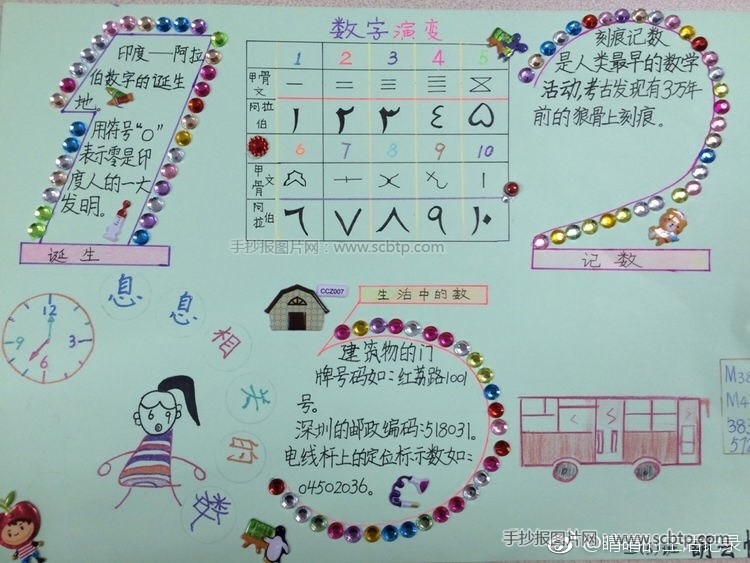 数字演变
印度——阿拉
伯数字的诞生
地。
用符号“0”
表示零是印
度人的一大
发明。
诞生
1 2 3 4 5
甲骨文 一 二 三
阿拉伯 ١ ٢ ٣ ٤ ٥
6 7 8 9 10
甲骨文
阿拉伯 ٦ ٧ ٨ ٩ ١٠
刻痕记数
是人类最早的数学
活动,考古发现有3万年
前的狼骨上刻痕。
记数
手抄报图片网:www.scbtp.com
息息相关的数
12
3
6
9
CCZ007
生活中的数
建筑物的门
牌号码如:红荔路1001
号。
深圳的邮政编码:518031。
电线杆上的定位标示数如:
04502036。
手抄报图片网 www.scbtp.com